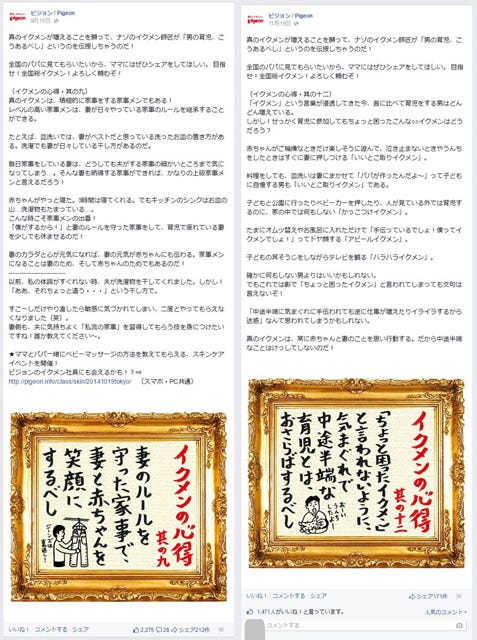 ピジョン / Pigeon
9月15日
真のイクメンが増えることを願って、ナゾのイクメン師匠が「男の育児、こ
うあるべし」というのを伝授しちゃうのだ!
全国のパパに見てもらいたいから、ママにはぜひシェアをしてほしい。 目指
せ!全国総イクメン!よろしく頼むぞ!
(イクメンの心得・其の九)
真のイクメンは、積極的に家事をする家事メンでもある!
レベルの高い家事メンは、妻が日々やっている家事のルールを継承すること
ができる。
たとえば、皿洗いでは、妻がベストだと思っている洗ったお皿の置き方があ
る。洗濯でも妻が日々している干し方があるのだ。
毎日家事をしている妻は、どうしても夫がする家事の細かいところまで気に
なってしまう…。そんな妻も納得する家事ができれば、かなりの上級家事メ
ンと言えるだろう!
赤ちゃんがやっと寝た。3時間は寝てくれる。でもキッチンのシンクはお皿の
山…洗濯物もたまっている…。
こんな時こそ家事メンの出番!
「僕がするから!」と妻のルールを守った家事をして、育児で疲れている妻
を少しでも休ませるのだ!
妻のカラダと心が元気になれば、妻の元気が赤ちゃんにも伝わる。家事メン
になることは妻のため、そして赤ちゃんのためでもあるのだ!
------------------------
以前、私の体調がすぐれない時、夫が洗濯物を干してくれました。しかし!
「ああ、それちょっと違う・・・」という干し方で。
すこーしだけやり直したら敏感に気づかれてしまい、二度とやってもらえな
くなりました(笑)。
妻側も、夫に気持ちよく「私流の家事」を習得してもらう技を身につけたい
ですね!誰か教えてください~。
★ママとパパ一緒にベビーマッサージの方法を教えてもらえる、スキンケア
イベントを開催!
ピジョンのイクメン社員にも会えるかも!?⇒
http://pigeon.info/class/skin/20141019tokyo/ (スマホ・PC共通)
イクメンの心得
其の九
妻のルールを
守った家事で、
妻と赤ちゃんを
笑顔に
するべし
いいね! コメントする シェア
2,275 28 シェア212件
ピジョン / Pigeon
11月15日
真のイクメンが増えることを願って、ナゾのイクメン師匠が「男の育児、こ
うあるべし」というのを伝授しちゃうのだ!
全国のパパに見てもらいたいから、ママにはぜひシェアをしてほしい。 目指
せ!全国総イクメン!よろしく頼むぞ!
(イクメンの心得・其の十二)
「イクメン」という言葉が浸透してきた今、昔に比べて育児をする男はどん
どん増えている。
しかし!せっかく育児に参加してもちょっと困ったこんな○○イクメンはどう
だろう?
赤ちゃんがご機嫌なときだけ楽しそうに遊んで、泣き止まないときやうんち
をしたときはすぐに妻に押しつける「いいとこ取りイクメン」。
料理をしても、皿洗いは妻にまかせて「パパが作ったんだよ~」って子ども
に自慢する男も「いいとこ取りイクメン」である。
子どもと公園に行ったりベビーカーを押したり、人が見ている外では育児す
るのに、家の中では何もしない「かっこつけイクメン」。
たまにオムツ替えやお風呂に入れただけで「手伝っているでしょ!僕ってイ
クメンでしょ!」ってドヤ顔する「アピールイクメン」。
子どもの耳そうじをしながらテレビを観る「ハラハライクメン」。
確かに何もしない男よりはいいかもしれない。
でもこれでは影で「ちょっと困ったイクメン」と言われてしまっても文句は
言えないぞ!
「中途半端に気まぐれに手伝われても逆に仕事が増えたりイライラするから
迷惑」なんて思われてしまうかもしれない。
真のイクメンは、常に赤ちゃんと妻のことを思い行動する。だから中途半端
なことはけっしてしないのだ!
イクメンの心得
其の十二
「ちょっと困ったイクメン」
と言われないように、
気まぐれで
中途半端な
育児とは、
おさらばするべし
いいね! コメントする
シェア171件
1,471人がいいね!と言っています。
人気のコメント
コメントする